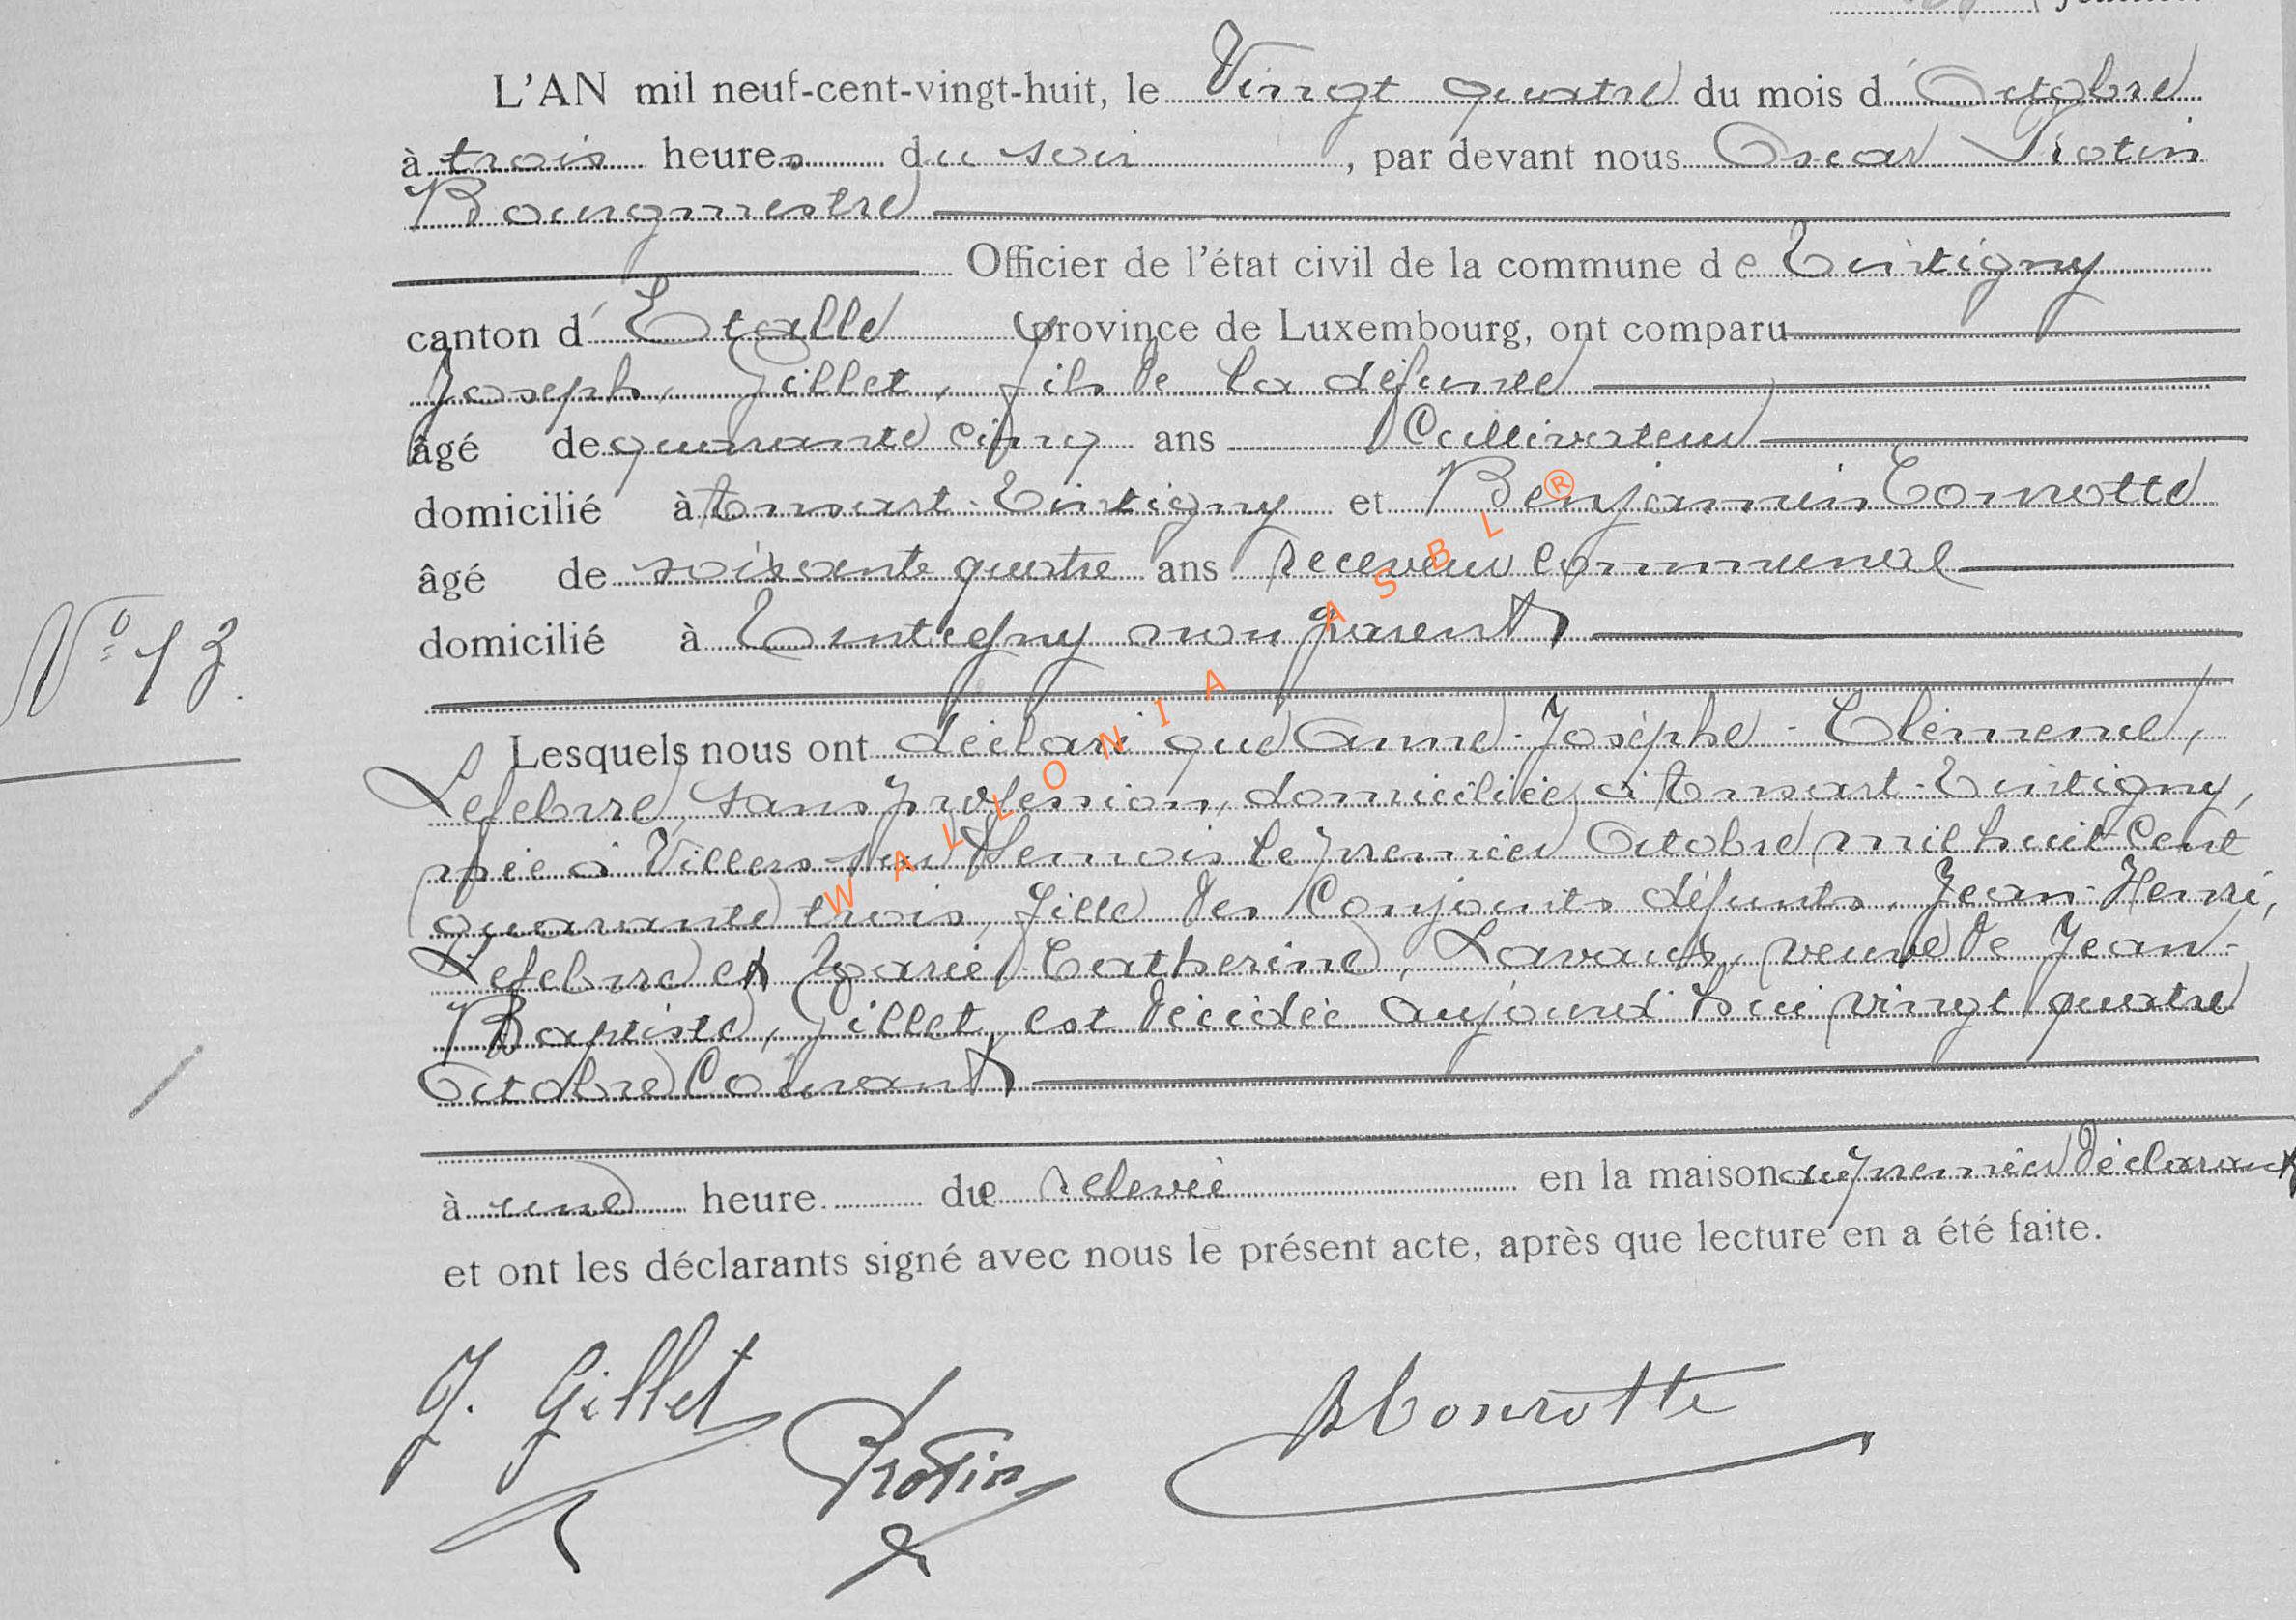 L'AN mil neuf-cent-vingt-huit, le Vingt quatre du mois d'Octobre
à trois heures du soir, par devant nous Oscar Protin
Bourgmestre
Officier de l'état civil de la commune de Tintigny
canton d'Etalle province de Luxembourg, ont comparu
Joseph, Gillet, fils de la défunte
âgé de quarante cinq ans Cultivateur
domicilié à Ansart-Tintigny et Benjamin Cornotte
âgé de soixante quatre ans receveur Communal
domicilié à Tintigny non parent
N° 13.
Lesquels nous ont déclaré que Anne-Josèphe-Clémence,
Lefebvre, sans profession, domiciliée à Ansart-Tintigny,
née à Villers-sur Semois le premier Octobre mil huit Cent
quarante trois, fille des Conjoints défunts, Jean-Henri,
Lefebvre et Marie-Catherine, Lavaux, veuve de Jean-
Baptiste, Gillet, est décédée aujourd'hui vingt quatre
Octobre Courant
à une heure de relevée en la maison du premier déclarant
et ont les déclarants signé avec nous le présent acte, après que lecture en a été faite.
J. Gillet Protin
WALLONIA ASBL ®